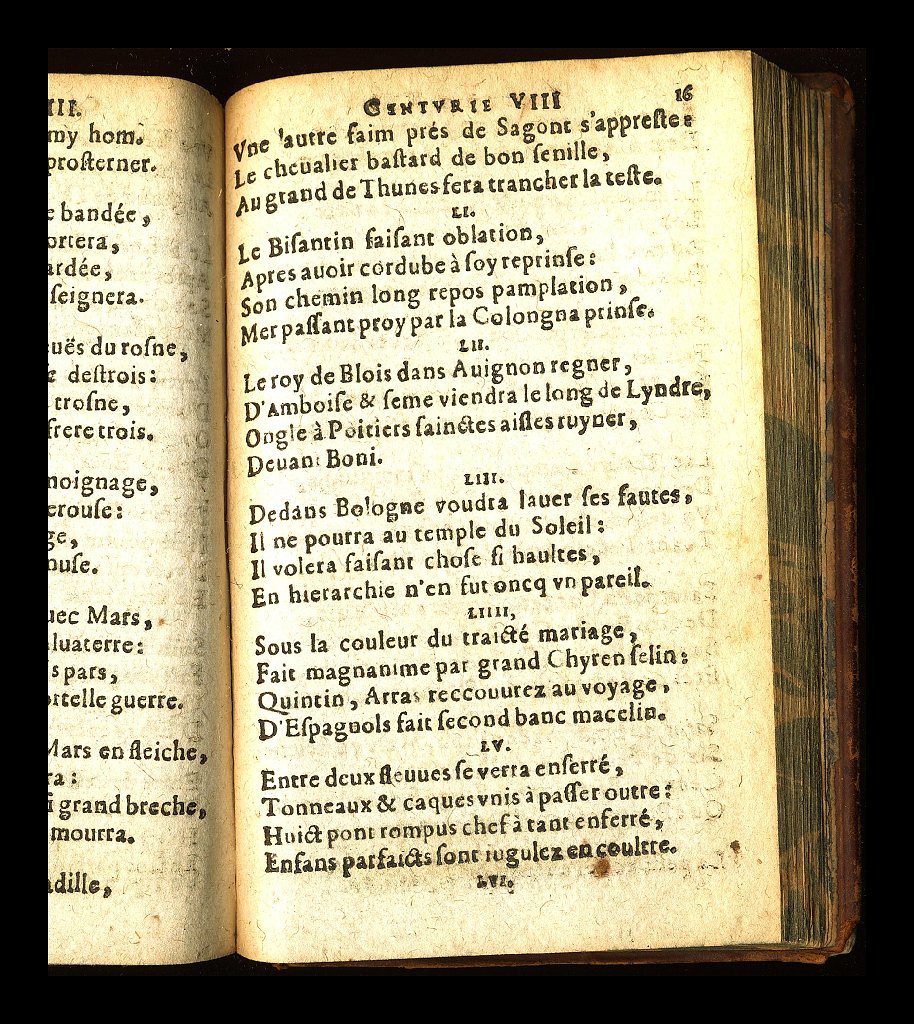 III.
my hom.
prosterner.
e bandée,
ortera,
ardée,
seignera.
cuës du rosne,
destrois:
trosne,
frere trois.
moignage,
erouse:
ge,
ouse.
uec Mars,
luaterre:
s pars,
ortelle guerre.
Mars en fleiche,
ra:
si grand breche,
mourra.
adille,
CENTVRIE VIII 16
Vne 'autre faim prés de Sagont s'appreste:
Le cheualier bastard de bon senille,
Au grand de Thunes fera trancher la teste.
LI.
Le Bisantin faisant oblation,
Apres auoir cordube à soy reprinse:
Son chemin long repos pamplation,
Mer passant proy par la Colongna prinse.
LII.
Le roy de Blois dans Auignon regner,
D'Amboise & seme viendra le long de Lyndre,
Ongle à Poitiers sainctes aisles ruyner,
Deuant Boni.
LIII.
Dedans Bologne voudra lauer ses fautes,
Il ne pourra au temple du Soleil:
Il volera faisant chose si haultes,
En hierarchie n'en fut oncq vn pareil.
LIIII,
Sous la couleur du traicté mariage,
Fait magnanime par grand Chyren selin:
Quintin, Arras reccouurez au voyage,
D'Espagnols fait second banc macelin.
LV.
Entre deux fleuues se verra enserré,
Tonneaux & caques vnis à passer outre:
Huict pont rompus chef à tant enferré,
Enfans parfaicts sont iugulez en coultre.
LVI.